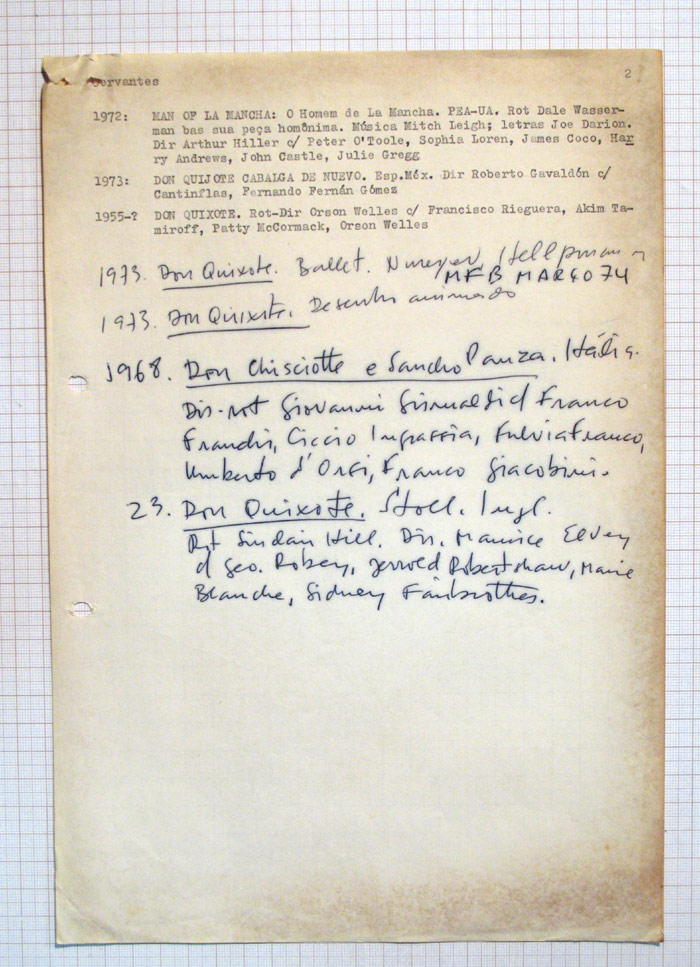 Cervantes 2
1972: MAN OF LA MANCHA: O Homem de La Mancha. PEA-UA. Rot Dale Wasser-
man bas sua peça homônima. Música Mitch Leigh; letras Joe Darion.
Dir Arthur Hiller c/ Peter O'Toole, Sophia Loren, James Coco, Har
ry Andrews, John Castle, Julie Gregg
1973: DON QUIJOTE CABALGA DE NUEVO. Esp.Méx. Dir Roberto Gavaldón c/
Cantinflas, Fernando Fernán Gómez
1955-? DON QUIXOTE. Rot-Dir Orson Welles c/ Francisco Rieguera, Akim Ta-
miroff, Patty McCormack, Orson Welles
1973. Don Quixote. Ballet. Nureyev, Hellpmann
MFB MARÇO 74
1973. Don Quixote. Desenho animado
1968. Don Chisciotte e Sancho Panza. Itália.
Dir-rot Giovanni Grimaldi c/ Franco
Franchi, Ciccio Ingrassia, Fulvia Franco,
Umberto d'Orsi, Franco Giacobini.
23. Don Quixote. Stoll. Ingl.
Rot Sinclair Hill. Dir. Maurice Elvey
c/ Geo. Robey, Jerrold Robertshaw, Marie
Blanche, Sidney Fairbrother.